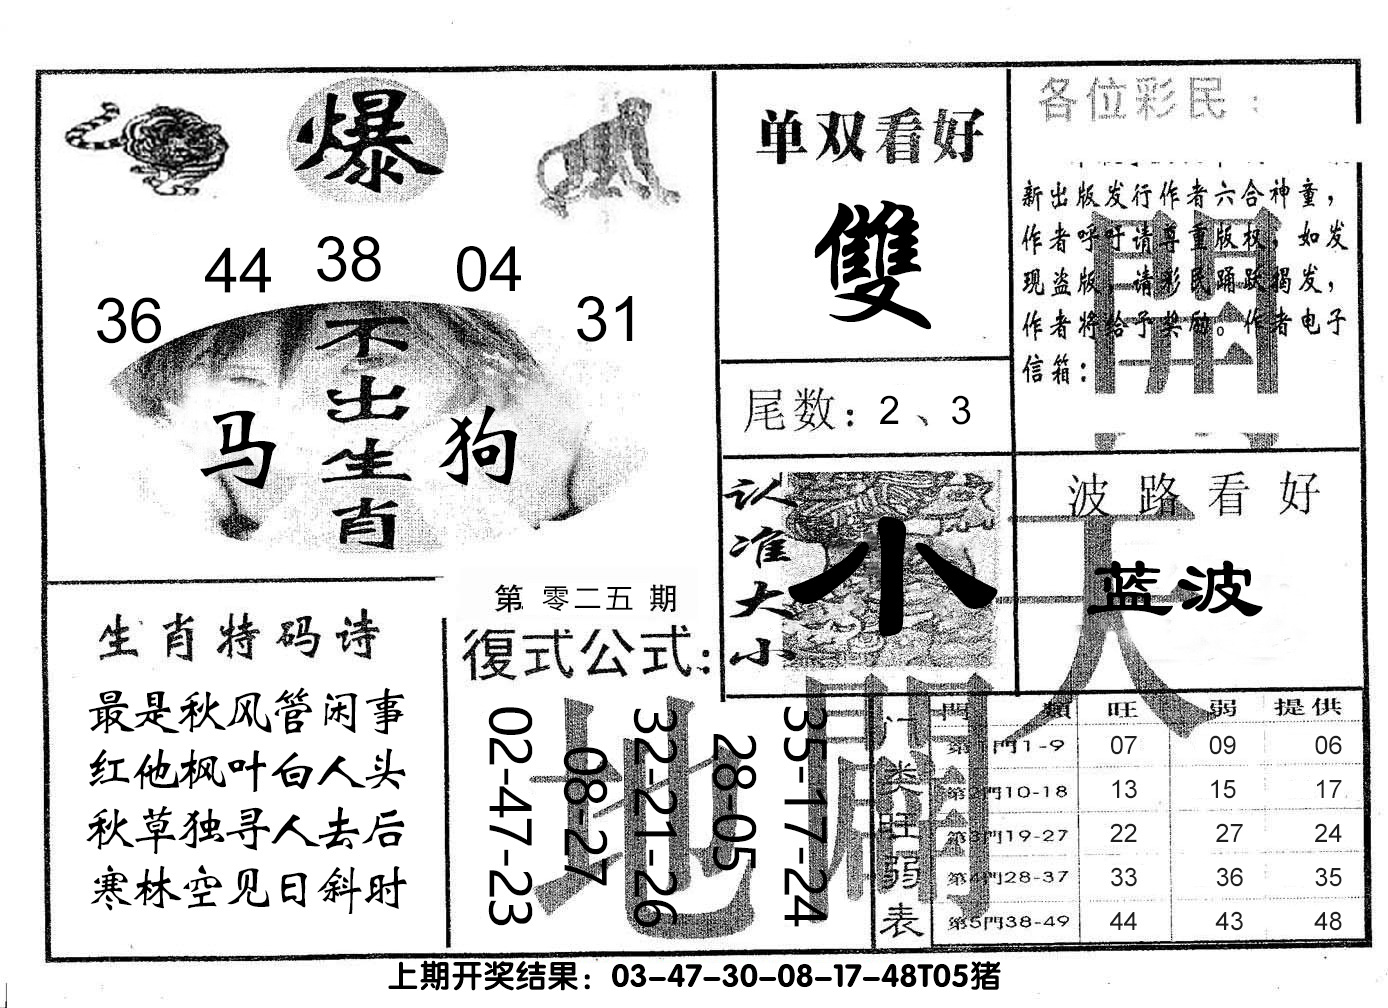 爆
36
44
38
04
31
不出生肖
马
狗
单双看好
雙
尾数：2、3
各位彩民：
新出版发行作者六合神童，
作者呼吁请尊重版权，如发
现盗版，请彩民踊跃揭发，
作者将给予奖励。作者电子
信箱：
認准大小
小
波路看好
蓝波
生肖特码诗
最是秋风管闲事
红他枫叶白人头
秋草独寻人去后
寒林空见日斜时
第 零二五 期
復式公式：
02-47-23
08-27
32-21-26
28-05
35-17-24
天
地
門类旺弱表
門類 旺 弱 提供
第1門1-9 07 09 06
第2門10-18 13 15 17
第3門19-27 22 27 24
第4門28-37 33 36 35
第5門38-49 44 43 48
上期开奖结果：03-47-30-08-17-48T05猪